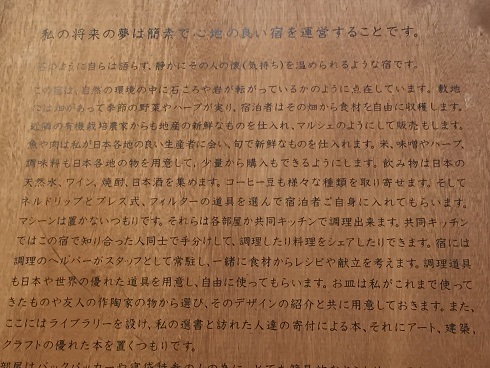 私の将来の夢は簡素で心地の良い宿を運営することです。
石のように自らは語らず、静かにその人の懐(気持ち)を温められるような宿です。
この宿は、自然の環境の中に石ころや岩が転がっているかのように点在しています。敷地
では畑があって季節の野菜やハーブが実り、宿泊者はその畑から食材を自由に収穫します。
近隣の有機栽培農家からも地産の新鮮なものを仕入れ、マルシェのようにして販売もします。
魚や肉は私が日本各地の良い生産者に会い、旬で新鮮なものを仕入れます。米、味噌やハーブ、
調味料も日本各地の物を用意して、少量から購入もできるようにします。飲み物は日本の
天然水、ワイン、焼酎、日本酒を集めます。コーヒー豆も様々な種類を取り寄せます。そして
ネルドリップとプレス式、フィルターの道具を選んで宿泊者ご自身に入れてもらいます。
マシーンは置かないつもりです。それらは各部屋か共同キッチンで調理出来ます。共同キッチン
ではこの宿で知り合った人同士で手分けして、調理したり料理をシェアしたりできます。宿には
調理のヘルパーがスタッフとして常駐し、一緒に食材からレシピや献立を考えます。調理道具
も日本や世界の優れた道具を用意し、自由に使ってもらいます。お皿は私がこれまで使って
きたものや友人の作陶家の物から選び、そのデザインの紹介と共に用意しておきます。また、
ここにはライブラリーを設け、私の選書と訪れた人達の寄付による本、それにアート、建築、
クラフトの優れた本を置くつもりです。
部屋はバックパッカーや